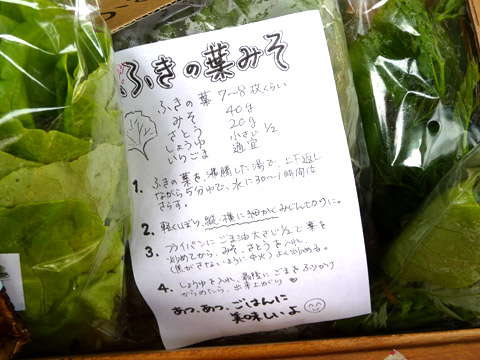 ふきの葉みそ
ふきの葉 7〜8枚くらい
みそ 40g
さとう 20g
しょうゆ 小さじ1/2
いりごま 適宜
1. ふきの葉を、沸騰した湯で、上下返し
ながら5分ゆで、水に30〜1時間位
さらす。
2. 軽くしぼり、縦・横に細かくみじん切りに。
3. フライパンにごま油大さじ1/2で葉を
炒めてから、みそ、さとうを入れ、
(焦がさないように中火)よく炒める。
4. しょうゆを入れ、最後にごまをふりかけ
からめたら、出来上がり
あつ、あつ、ごはんに
美味しいよ